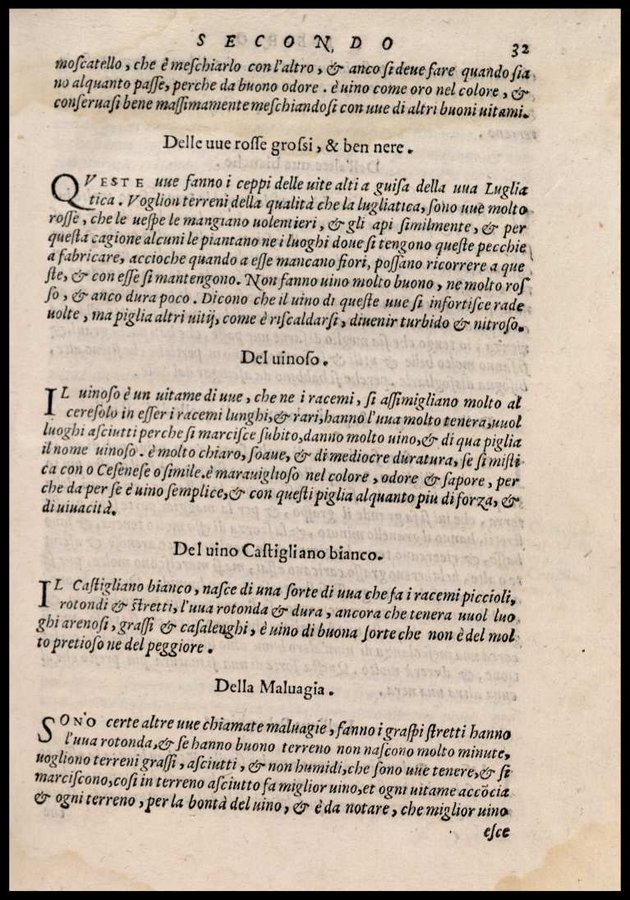 SECONDO 32
moscatello, che è meschiarlo con l'altro, & anco si deue fare quando sia
no alquanto passe, perche da buono odore. è uino come oro nel colore, &
conseruasi bene massimamente meschiandosi con uue di altri buoni uitami.
Delle uue rosse grossi, & ben nere.
QVESTE uue fanno i ceppi delle uite alti a guisa della uua Luglia
tica. Voglion terreni della qualità che la lugliatica, sono uue molto
rosse, che le uespe le mangiano uolentieri, & gli api similmente, & per
questa cagione alcuni le piantano ne i luoghi doue si tengono queste pecchie
a fabricare, accioche quando a esse mancano fiori, possano ricorrere a que
ste, & con esse si mantengono. Non fanno uino molto buono, ne molto ros
so, & anco dura poco. Dicono che il uino di queste uue si infortisce rade
uolte, ma piglia altri uitij, come è riscaldarsi, diuenir turbido & nitroso.
Del uinoso.
IL uinoso è un uitame di uue, che ne i racemi, si assimigliano molto al
ceresolo in esser i racemi lunghi, & rari, hanno l'uua molto tenera, uuol
luoghi asciutti perche si marcisce subito, danno molto uino, & di qua piglia
il nome uinoso. è molto chiaro, soaue, & di mediocre duratura, se si misti
ca con o Cesenese o simile. è marauiglioso nel colore, odore & sapore, per
che da per se è uino semplice, & con questi piglia alquanto piu di forza, &
di uiuacità.
Del uino Castigliano bianco.
IL Castigliano bianco, nasce di una sorte di uua che fa i racemi piccioli,
rotondi & stretti, l'uua rotonda & dura, ancora che tenera uuol luo
ghi arenosi, grassi & casalenghi, è uino di buona sorte che non è del mol
to pretioso ne del peggiore.
Della Maluagia.
SONO certe altre uue chiamate maluagie, fanno i graspi stretti hanno
l'uua rotonda, & se hanno buono terreno non nascono molto minute,
uogliono terreni grassi, asciutti, & non humidi, che sono uue tenere, & si
marciscono, cosi in terreno asciutto fa miglior uino, et ogni uitame accōcia
& ogni terreno, per la bontà del uino, & è da notare, che miglior uino
esce